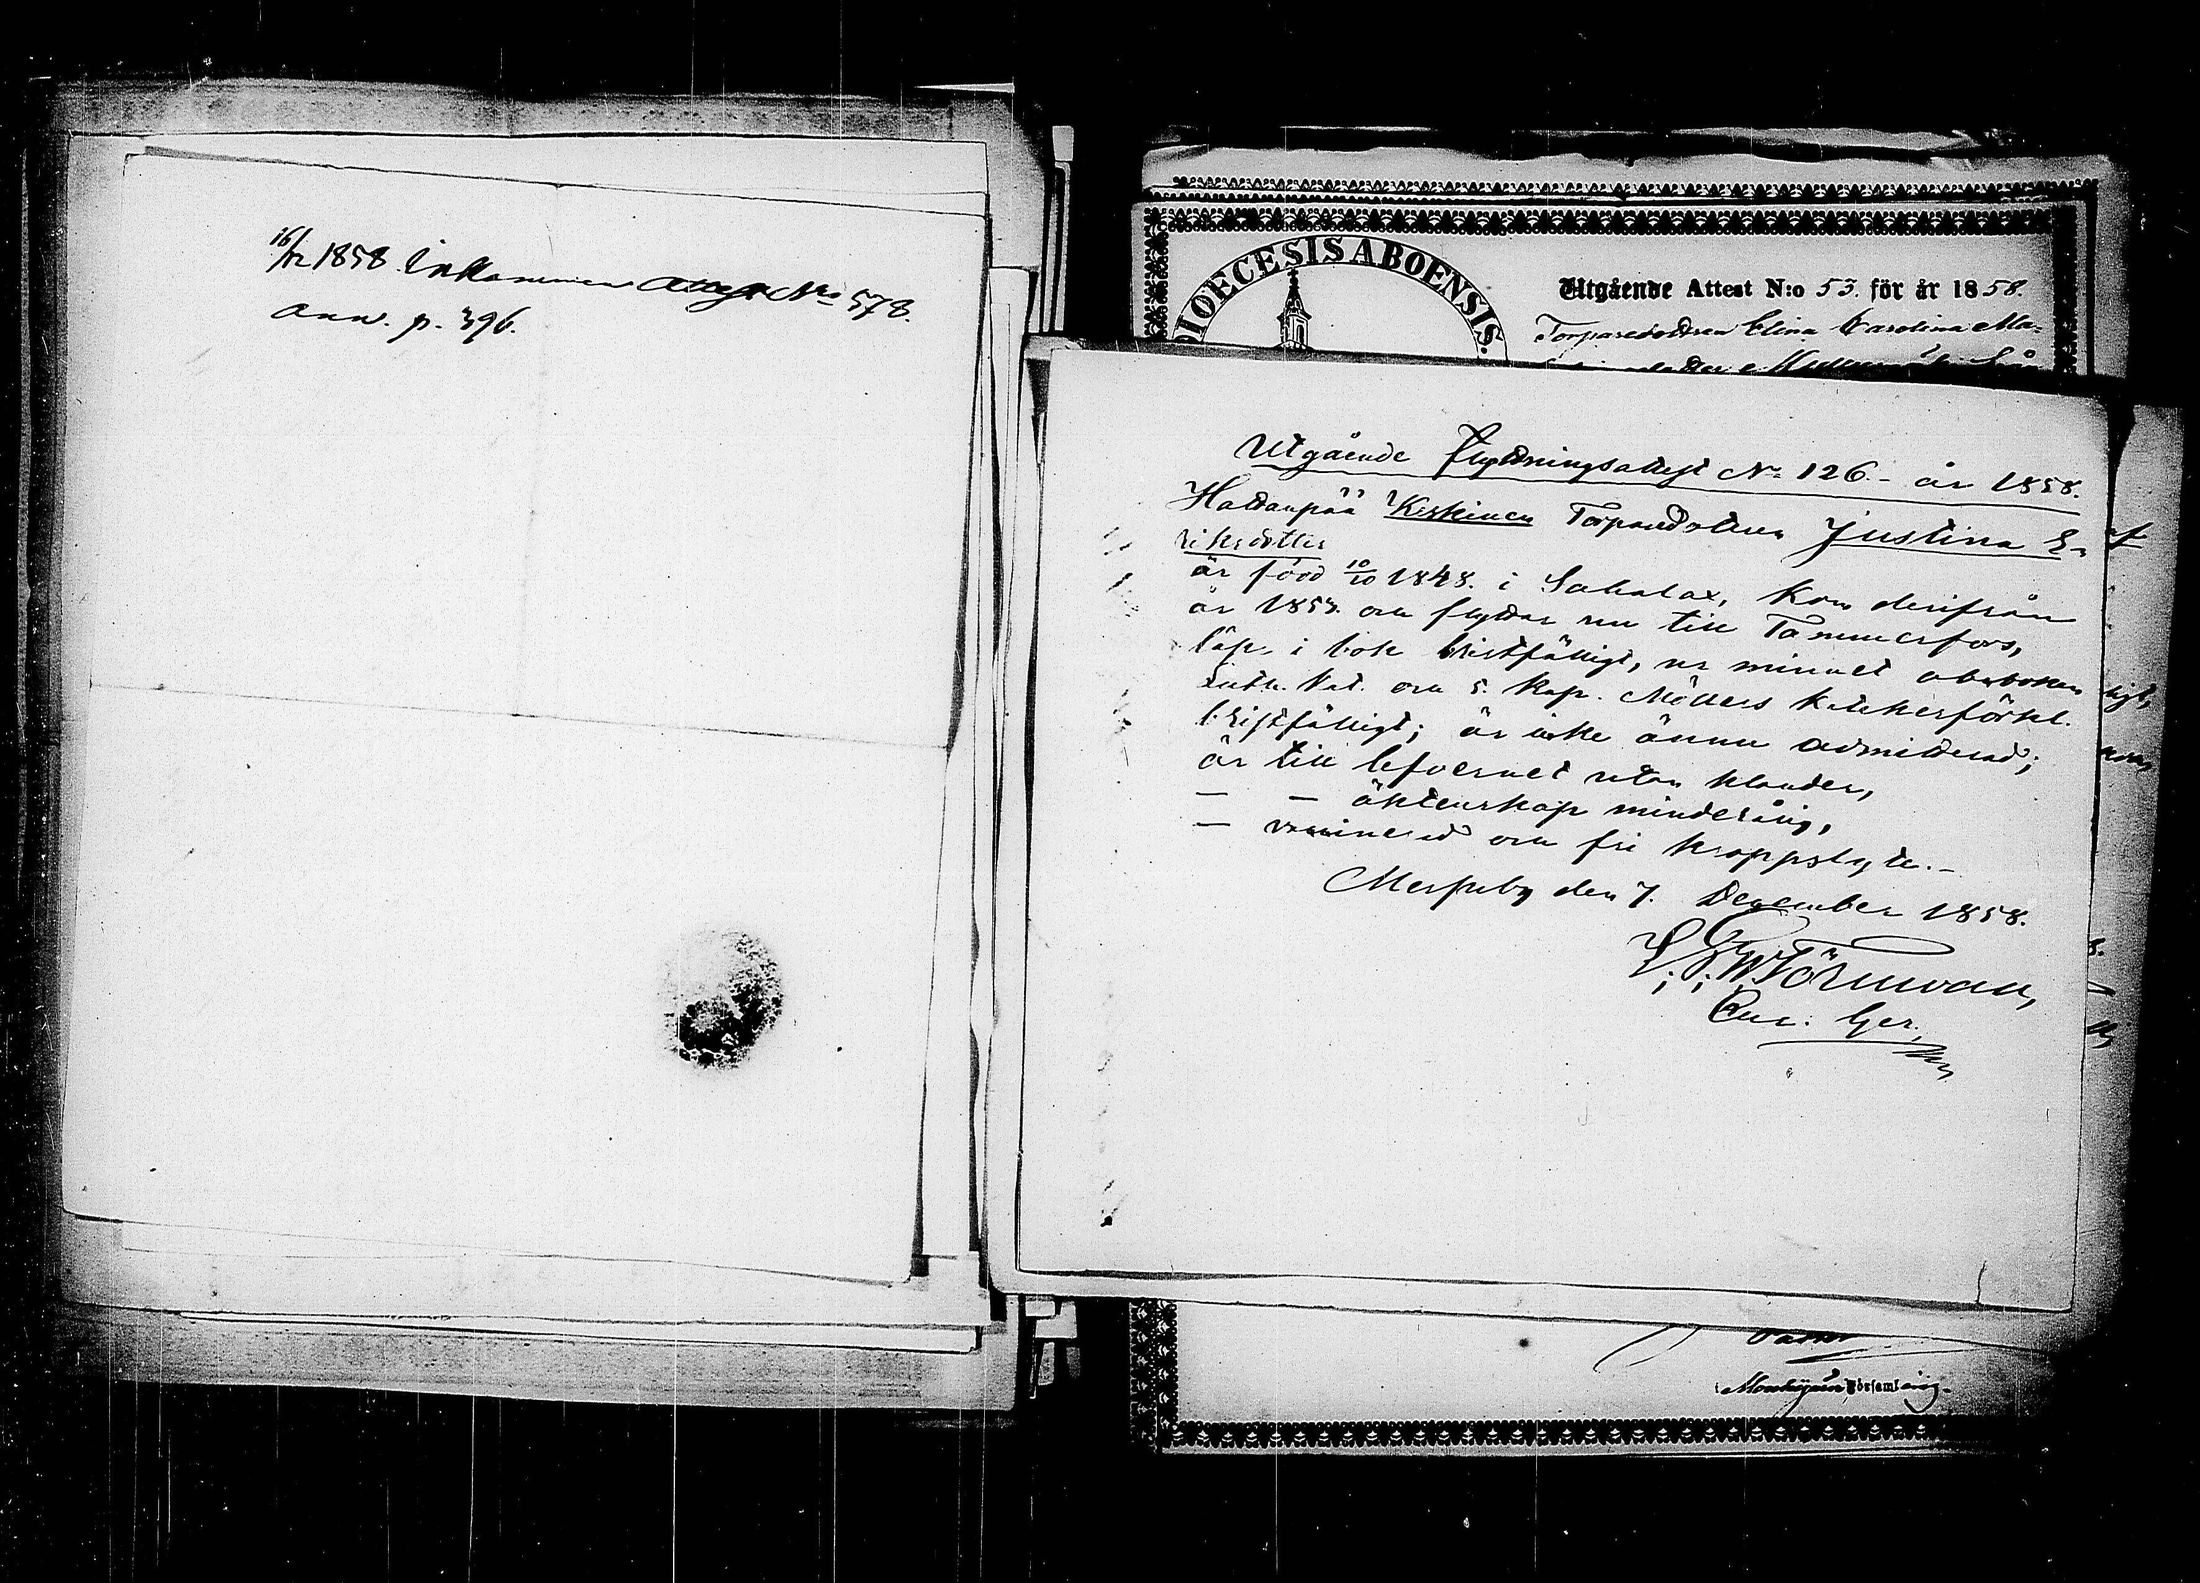 16/12 1858 Inkommen Attest No 578.
Ann. p. 396.
DIOECESIS ABOENSIS.
Utgående Attest N:o 53. för år 1858.
Torparedottren Elina Carolina Ma-
Utgående flyttningsattest No 126.- år 1858.
Hattanpää Keskinen Torparedottren Justina E-
riksdotter
är född 10/10 1848. i Sahalax, kom derifrån
år 1853. och flyttar nu till Tammerfors,
läser i bok bristfälligt, ur minnet abcboken
Luth. Kat. och 5. Kap. Möllers katekesförkl.
bristfälligt; är icke ännu admitterad;
är till lefvernet utan klander,
— — äktenskap minderårig,
— vaccinerad och fri kroppslyte.-
Messuby den 7. December 1858.
Törnvall,
Past.
församling